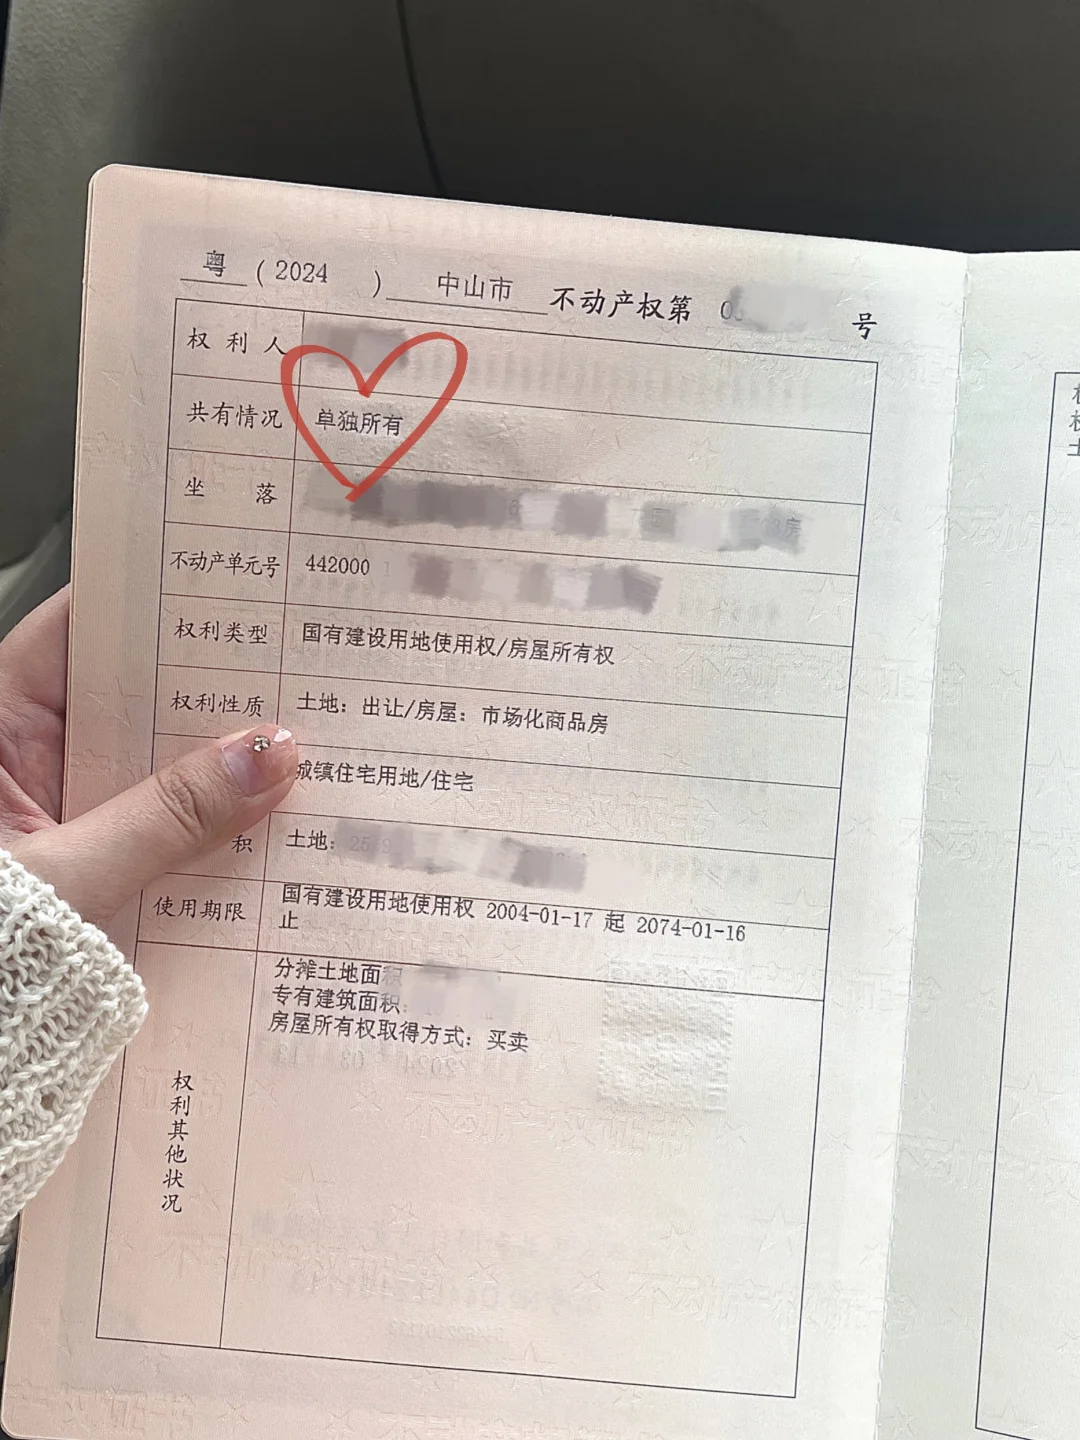 粤 (2024 ) 中山市 不动产权第 号
权利人
共有情况 单独所有
坐落 房
不动产单元号 442000
权利类型 国有建设用地使用权/房屋所有权
权利性质 土地：出让/房屋：市场化商品房
城镇住宅用地/住宅
积 土地：
使用期限 国有建设用地使用权 2004-01-17 起 2074-01-16
止
分摊土地面积
专有建筑面积：
房屋所有权取得方式：买卖
权利其他状况